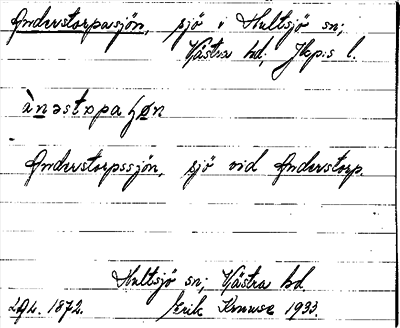 Anderstorpasjön, sjö i Hultsjö sn;
Västra hd, Jkp:s l.
ànəstɒpa ɧøn
Anderstorpssjön, sjö vid Anderstorp.
Hultsjö sn; Västra hd
1872. Erik Knuuse 1933.